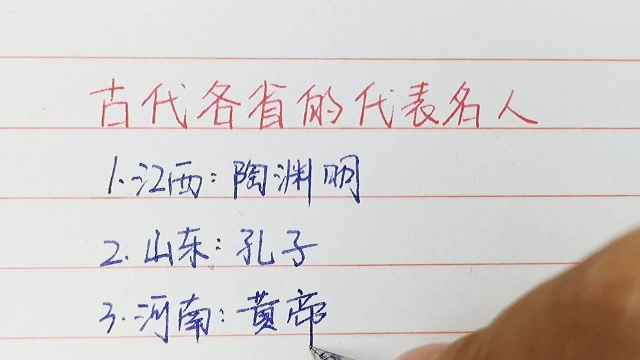 古代各省的代表名人
1.江西：陶渊明
2.山东：孔子
3.河南：黄帝